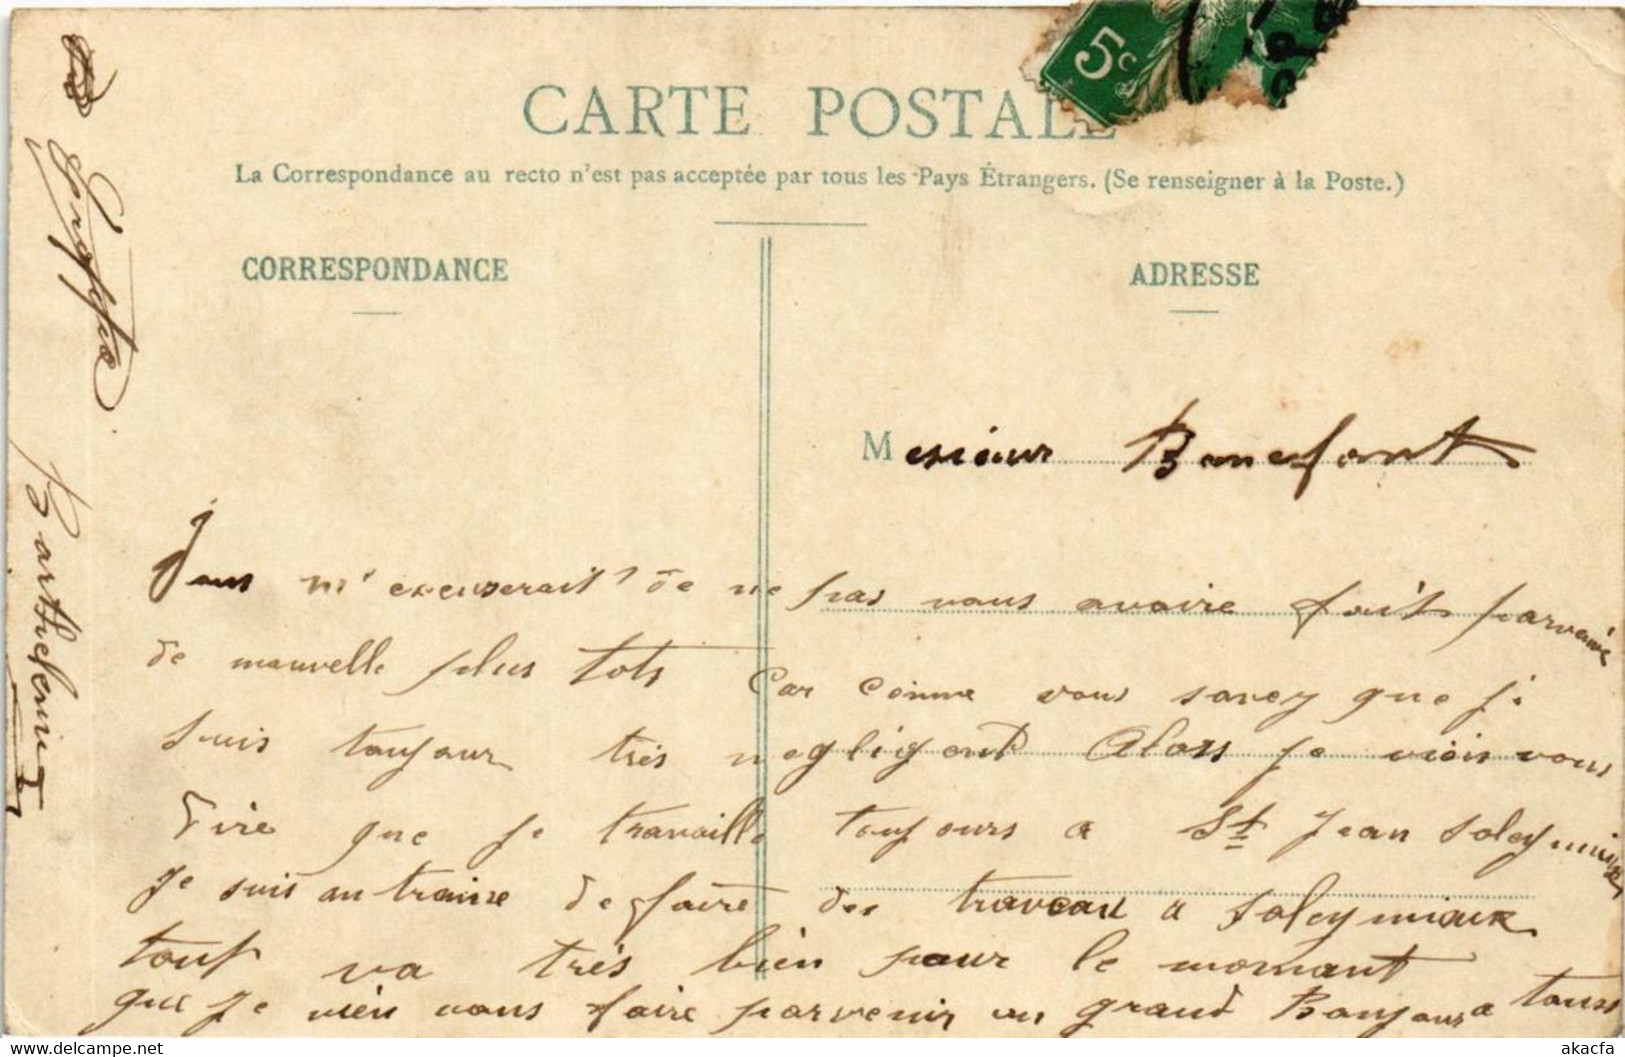 5c
CARTE POSTALE
La Correspondance au recto n'est pas acceptée par tous les Pays Étrangers. (Se renseigner à la Poste.)
CORRESPONDANCE
ADRESSE
Mesieur Bonnefont
m'excuserait de ne pas vous avoire fait parvenire
de nouvelle plus tots Car comme vous savez que je
suis toujour très negligant Alors je vien vous
Dire que je travaille toujours a St Jean Soleymieux
je suis an traine de faire des traveau a Soleymieux
tout va très bien pour le momant
que je vien vous faire parvenir un grand Bonjour a touss
Barthelemie
akacfa